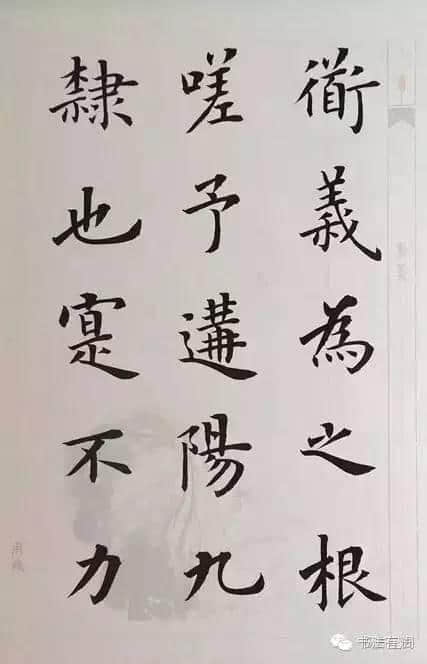 衜義為之根
嗟予遘陽九
隸也寔不力
书法有润